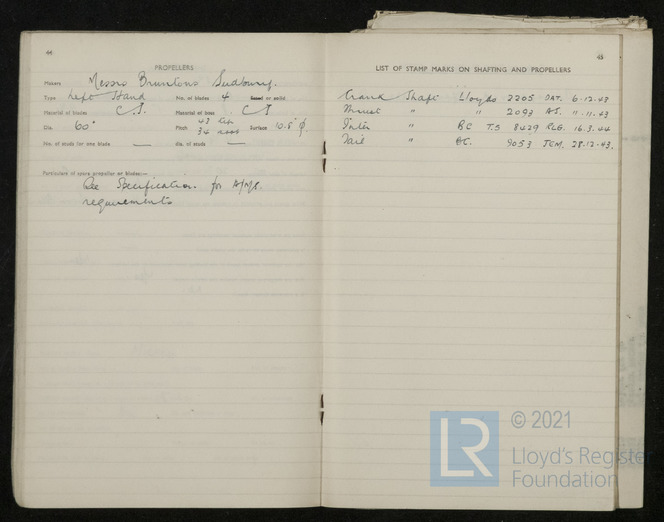 44
PROPELLERS
Makers Messrs Bruntons Sudbury.
Type Left Hand No. of blades 4 or solid
Material of blades C.I. Material of boss C I
Dia. 60" Pitch 43 tip 34 Surface 10.5
No. of studs for one blade — dia. of studs —
Particulars of spare propeller or blades:—
See Specification for
requirements
45
LIST OF STAMP MARKS ON SHAFTING AND PROPELLERS
Crank Shaft Lloyds 2205 6-12-43
Thrust " " 2093 11-11-43
Inter " BC T.S 8429 RLG. 16.3.44
Tail " BC. 9053 28-12-43.
© 2021
LR Lloyd's Register
Foundation